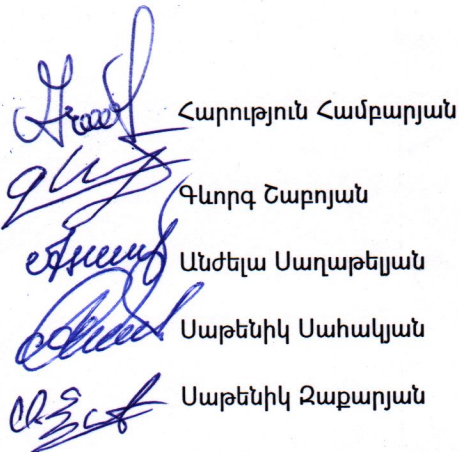 Հարություն Համբարյան
Գևորգ Շաբոյան
Անժելա Սաղաթելյան
Սաթենիկ Սահակյան
Սաթենիկ Զաքարյան